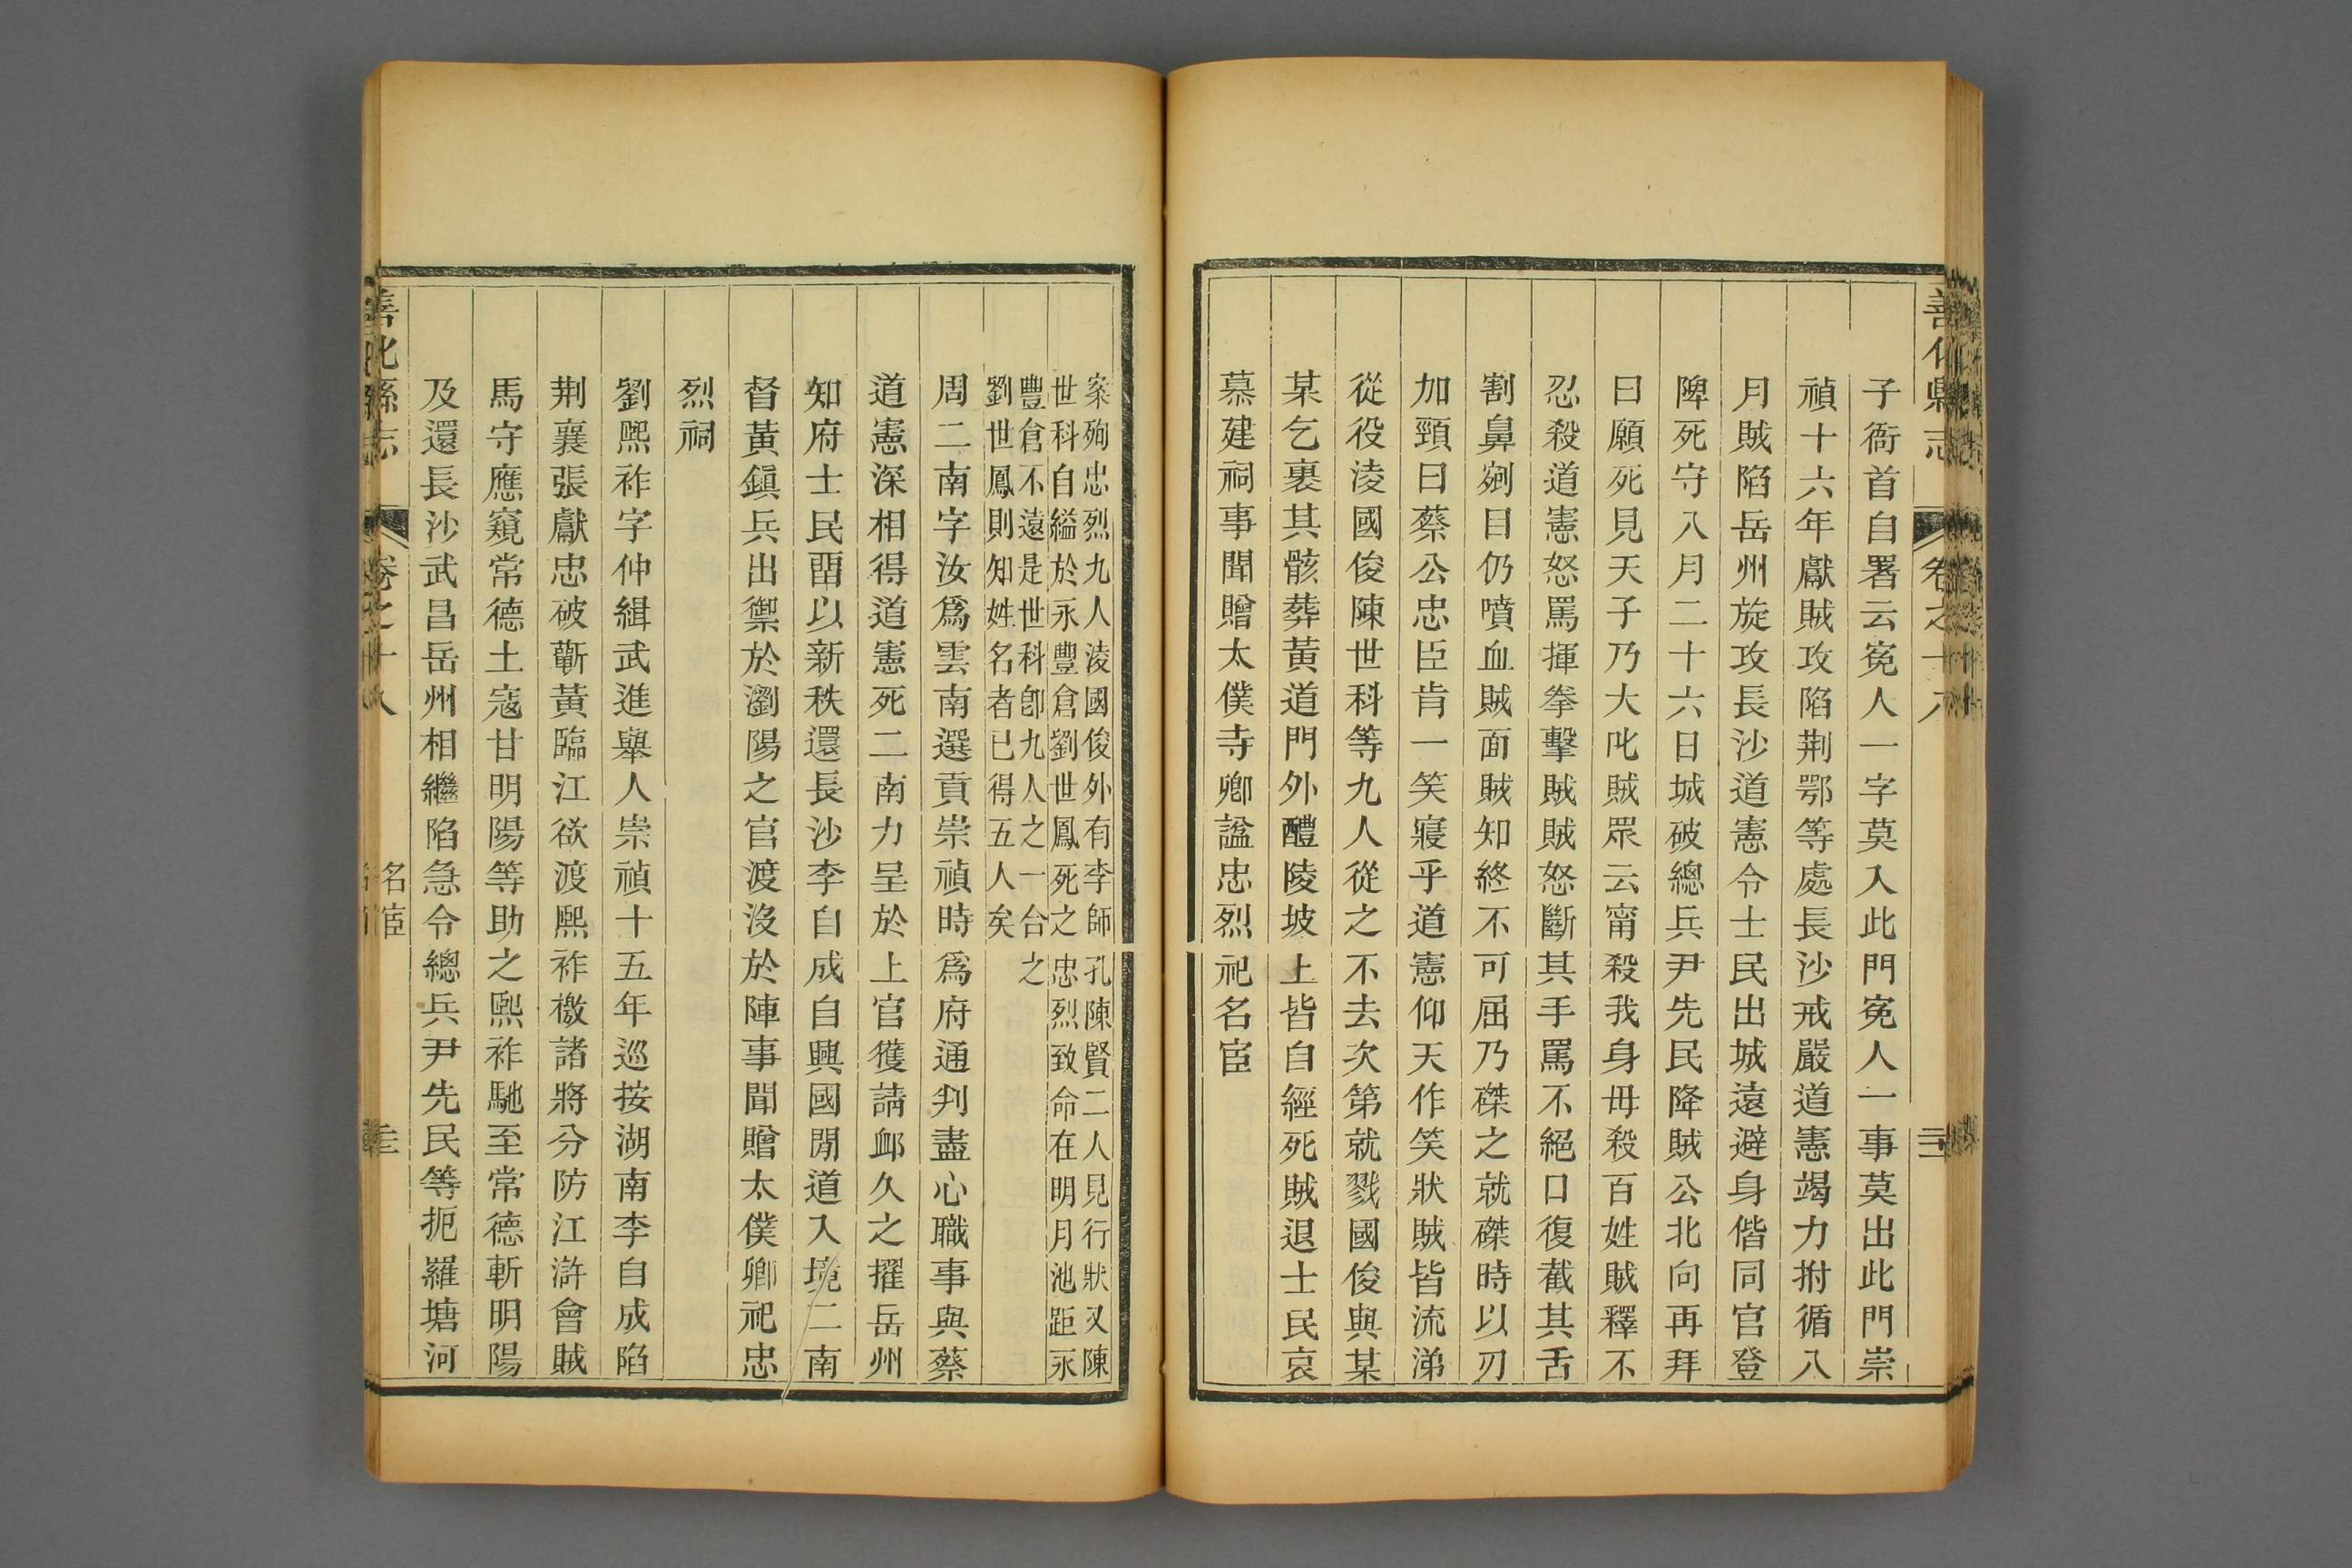 善化縣志
卷之十八
子衙首自署云寃人一字莫入此門寃人一事莫出此門崇
禎十六年獻賊攻陷荆鄂等處長沙戒嚴道憲竭力拊循八
月賊陷岳州旋攻長沙道憲令士民出城遠避身偕同官登
陴死守八月二十六日城破總兵尹先民降賊公北向再拜
曰願死見天子乃大叱賊眾云甯殺我身毋殺百姓賊釋不
忍殺道憲怒罵揮拳擊賊賊怒斷其手罵不絕口復截其舌
割鼻剜目仍噴血賊面賊知終不可屈乃磔之就磔時以刃
加頸曰蔡公忠臣肯一笑寢乎道憲仰天作笑狀賊皆流涕
從役淩國俊陳世科等九人從之不去次第就戮國俊與某
某乞裹其骸葬黃道門外醴陵坡上皆自經死賊退士民哀
慕建祠事聞贈太僕寺卿諡忠烈祀名宦
案殉忠烈九人淩國俊外有李師孔陳賢二人見行狀又陳
世科自縊於永豐倉劉世鳳死之忠烈致命在明月池距永
豐倉不遠是世科卽九人之一合之
劉世鳳則知姓名者已得五人矣
周二南字汝爲雲南選貢崇禎時爲府通判盡心職事與蔡
道憲深相得道憲死二南力呈於上官獲請卹久之擢岳州
知府士民畱以新秩還長沙李自成自興國閒道入境二南
督黃鎭兵出禦於瀏陽之官渡沒於陣事聞贈太僕卿祀忠
烈祠
劉熙祚字仲緝武進舉人崇禎十五年巡按湖南李自成陷
荆襄張獻忠破蘄黃臨江欲渡熙祚檄諸將分防江滸會賊
馬守應窺常德土寇甘明陽等助之熙祚馳至常德斬明陽
及還長沙武昌岳州相繼陷急令總兵尹先民等扼羅塘河
善化縣志
卷之十八
名宦